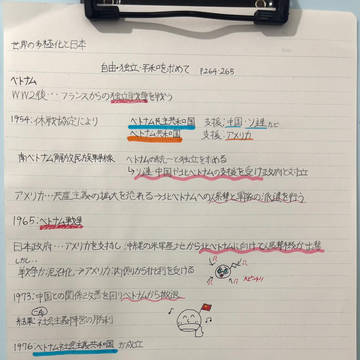 世界の多極化と日本
自由・独立・平和を求めて P264-265
ベトナム
WW2後… フランスからの独立戦争を戦う
1954:休戦協定により ベトナム民主共和国 支援:中国・ソ連など
ベトナム共和国 支援:アメリカ
南ベトナム解放民族戦線 ベトナムの統一と独立を求める
↳ソ連・中国や北ベトナムの支援を受け政府と対立
アメリカ…共産主義の拡大を恐れる→北ベトナムへの爆撃と軍隊の派遣を行う
1965:ベトナム戦争
日本政府…アメリカを支持し、沖縄の米軍基地から北ベトナムに向けて爆撃機が出撃
しかし…
戦争が泥沼化→アメリカ:内側から批判を受ける
1973:中国との関係改善を図りベトナムから撤退
結果:社会主義陣営の勝利
1976:ベトナム社会主義共和国が成立